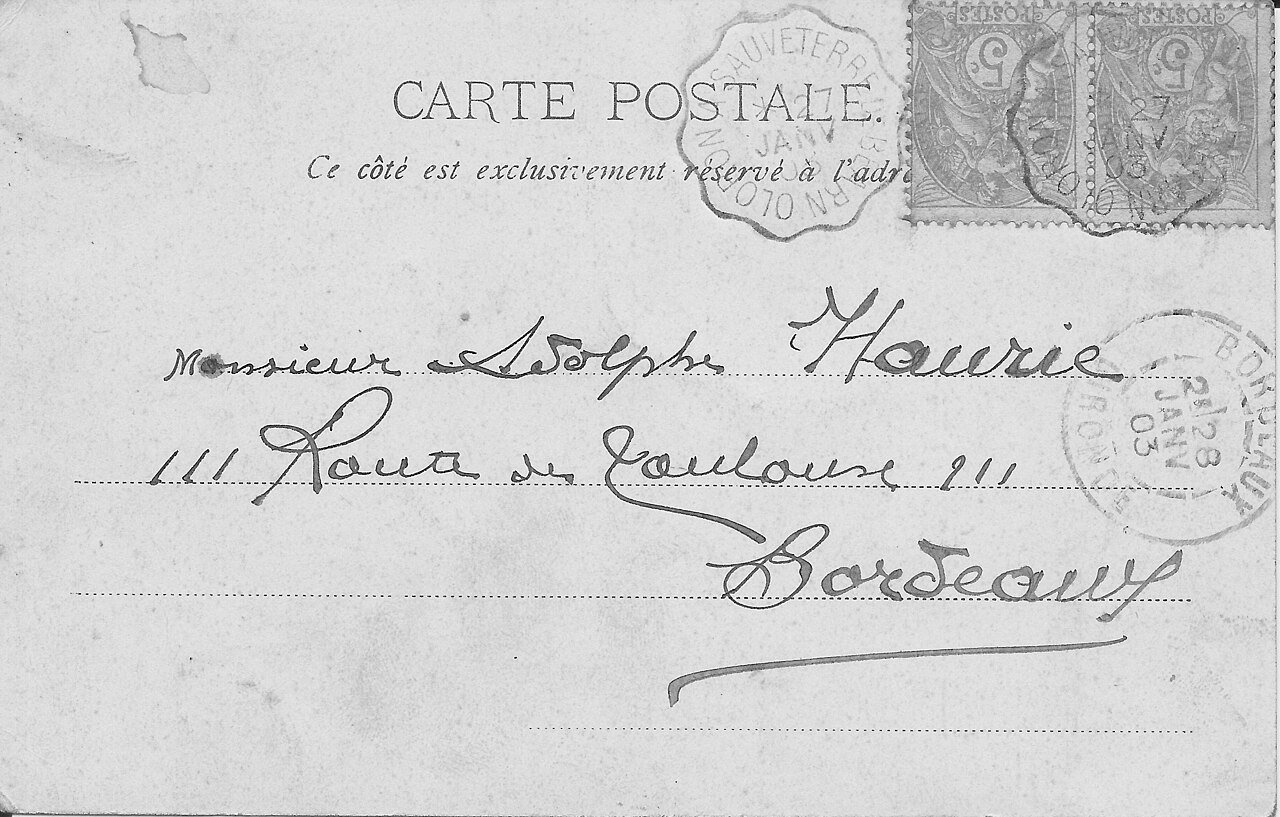 CARTE POSTALE.
Ce côté est exclusivement réservé à l'adre
SAUVETERRE BÉARN OLORON
27
JANV
03
POSTES POSTES
5c 5c
27
03
OLORON
Monsieur Adolphe Haurie
111 Route de Toulouse 111
Bordeaux
BORDEAUX GIRONDE
28
JANV
03